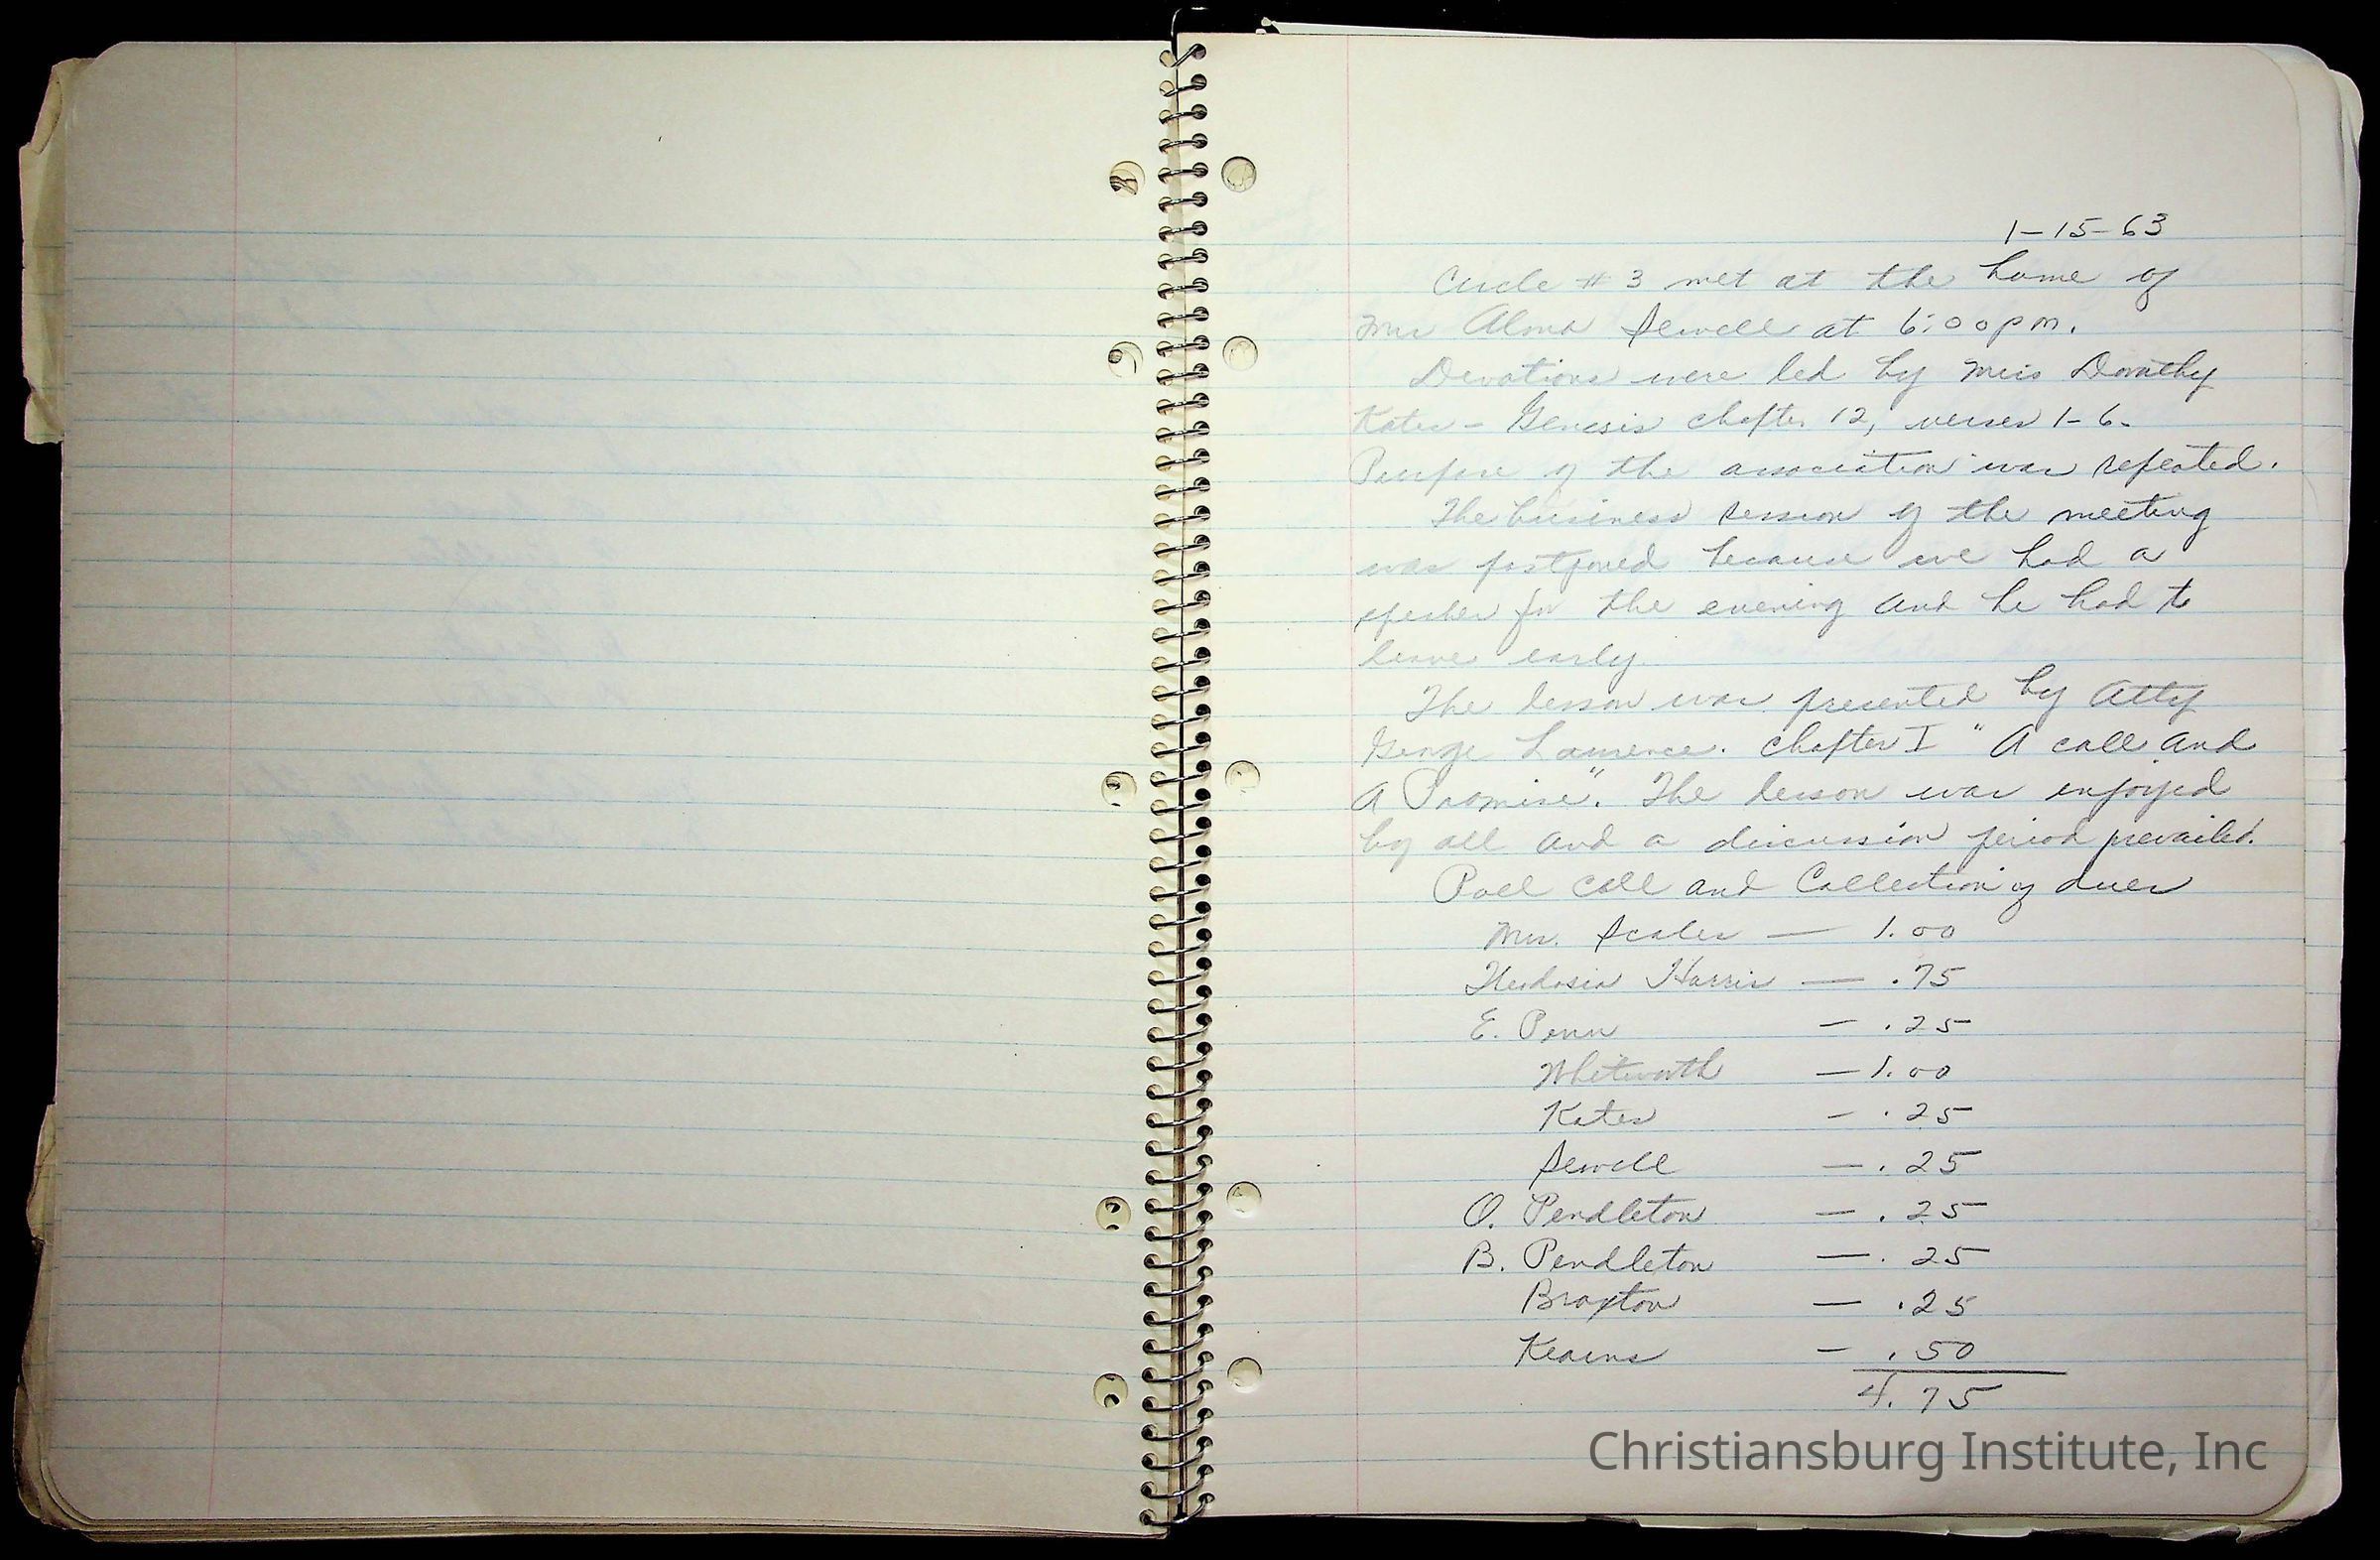 1-15-63
Circle # 3 met at the home of
Mrs Alma Sewell at 6:00 pm.
Devotions were led by Miss Dorothy
Kates - Genesis chapter 12, verses 1-6.
Purpose of the association was repeated.
The business session of the meeting
was postponed because we had a
speaker for the evening and he had to
leave early.
The lesson was presented by Atty
George Lawrence. Chapter I "A call and
A Promise". The lesson was enjoyed
by all and a discussion period prevailed.
Roll call and Collection of dues
Mrs. Scales — 1.00
Theodosia Harris — .75
E. Penn — .25
Whitworth — 1.00
Kates — .25
Sewell — .25
O. Pendleton — .25
B. Pendleton — .25
Braxton — .25
Kearns — .50
4.75
Christiansburg Institute, Inc